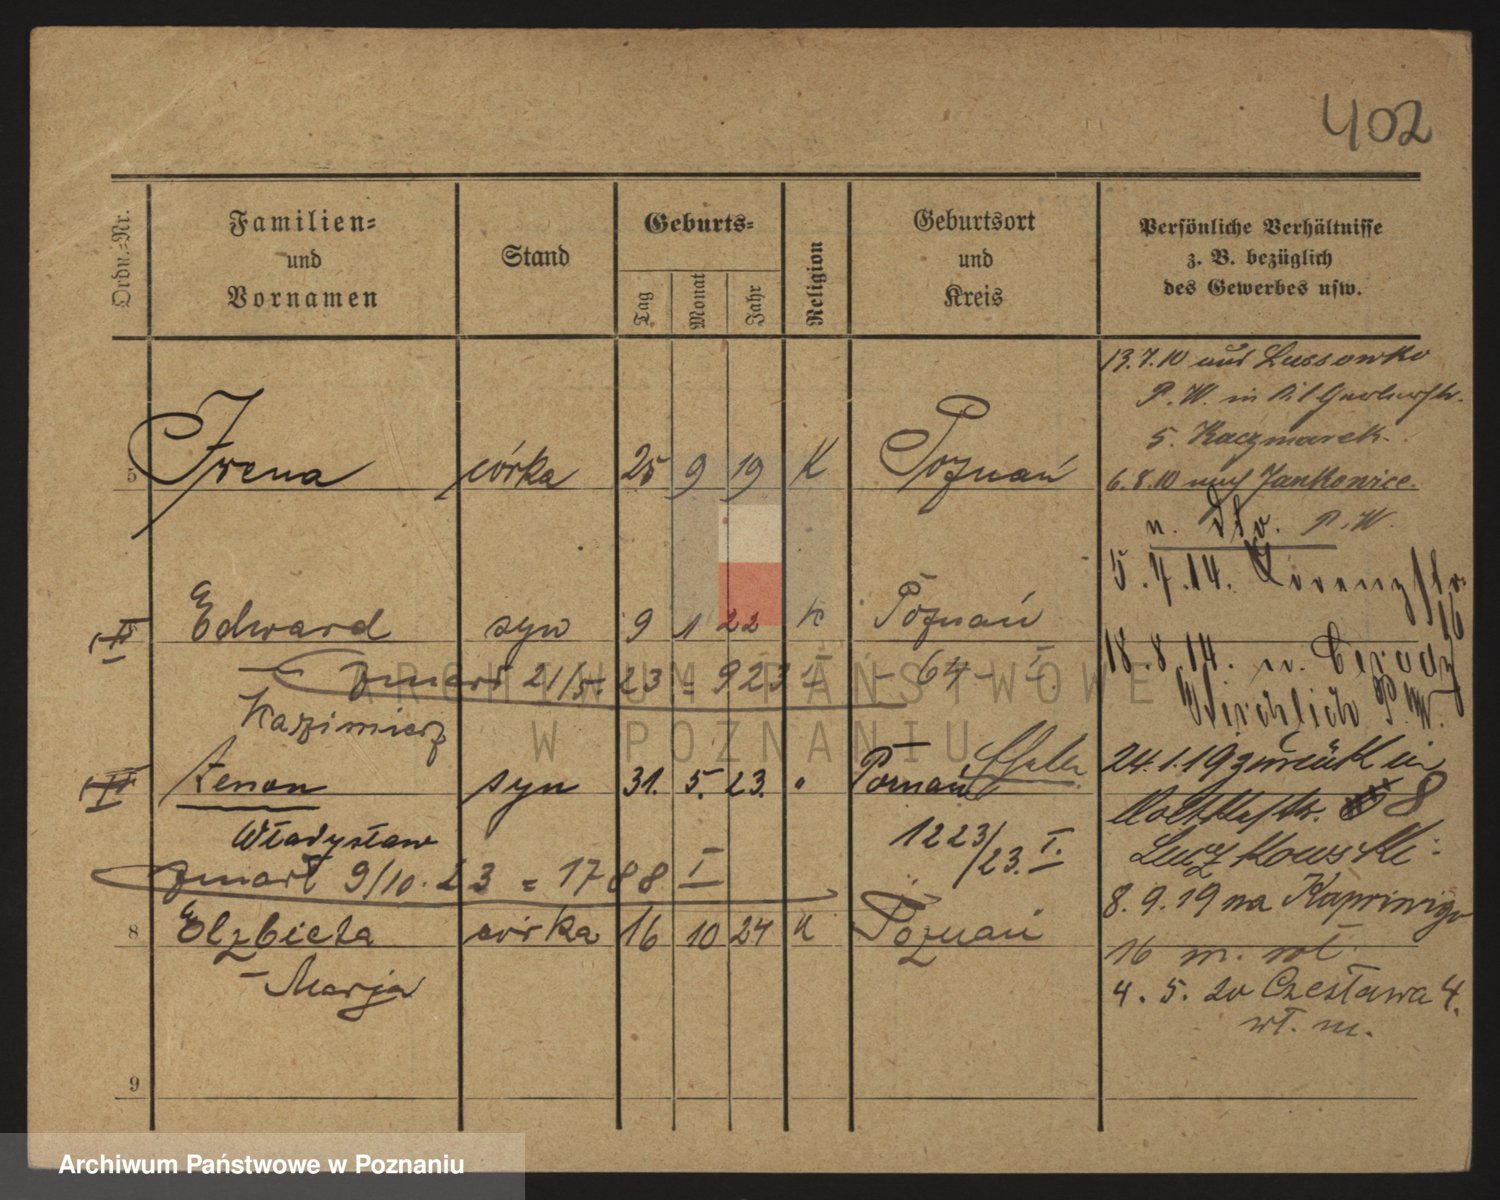 402
Ordn.-Nr.
Familien-
und
Vornamen
Stand
Geburts-
Tag
Monat
Jahr
Religion
Geburtsort
und
Kreis
Persönliche Verhältnisse
z. B. bezüglich
des Gewerbes usw.
5 Irena córka 25 9 19 K Poznań
Edward syn 9 1 22 K Poznań
zmarł 21/5. 23 = 923 I - 64 - I.
Kazimierz
Zenon syn 31. 5. 23. Poznań
Władysław 1223/23. I.
zmarł 9/10. 23 = 1788 I
8 Elzbieta córka 16 10 24 K Poznań
Marja
9
13.7.10 aus Lussowko
P. W. in
5. Kaczmarek.
6.8.10 nach Jankowice.
n. dto. P. W.
5.7.14. Lorenzstr.
16
18.8.14. n.
P. W.
24.1.19 zurück in
8
8.9.19 na
16 m.
4. 5. 20 Czesława 4.
wł. m.
ARCHIWUM PAŃSTWOWE
W POZNANIU
Archiwum Państwowe w Poznaniu